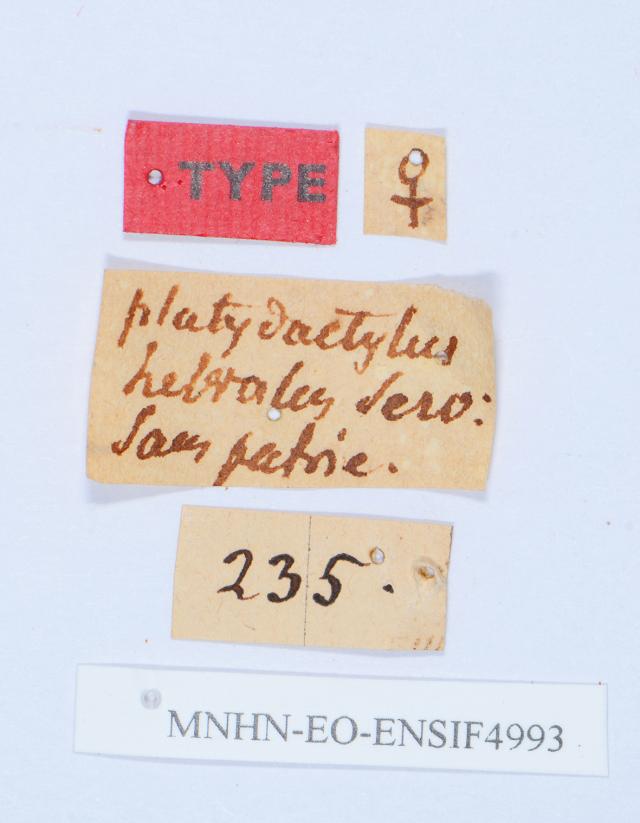 TYPE ♀
platydactylus
helvolus Serv:
Sans patrie.
235.
MNHN-EO-ENSIF4993